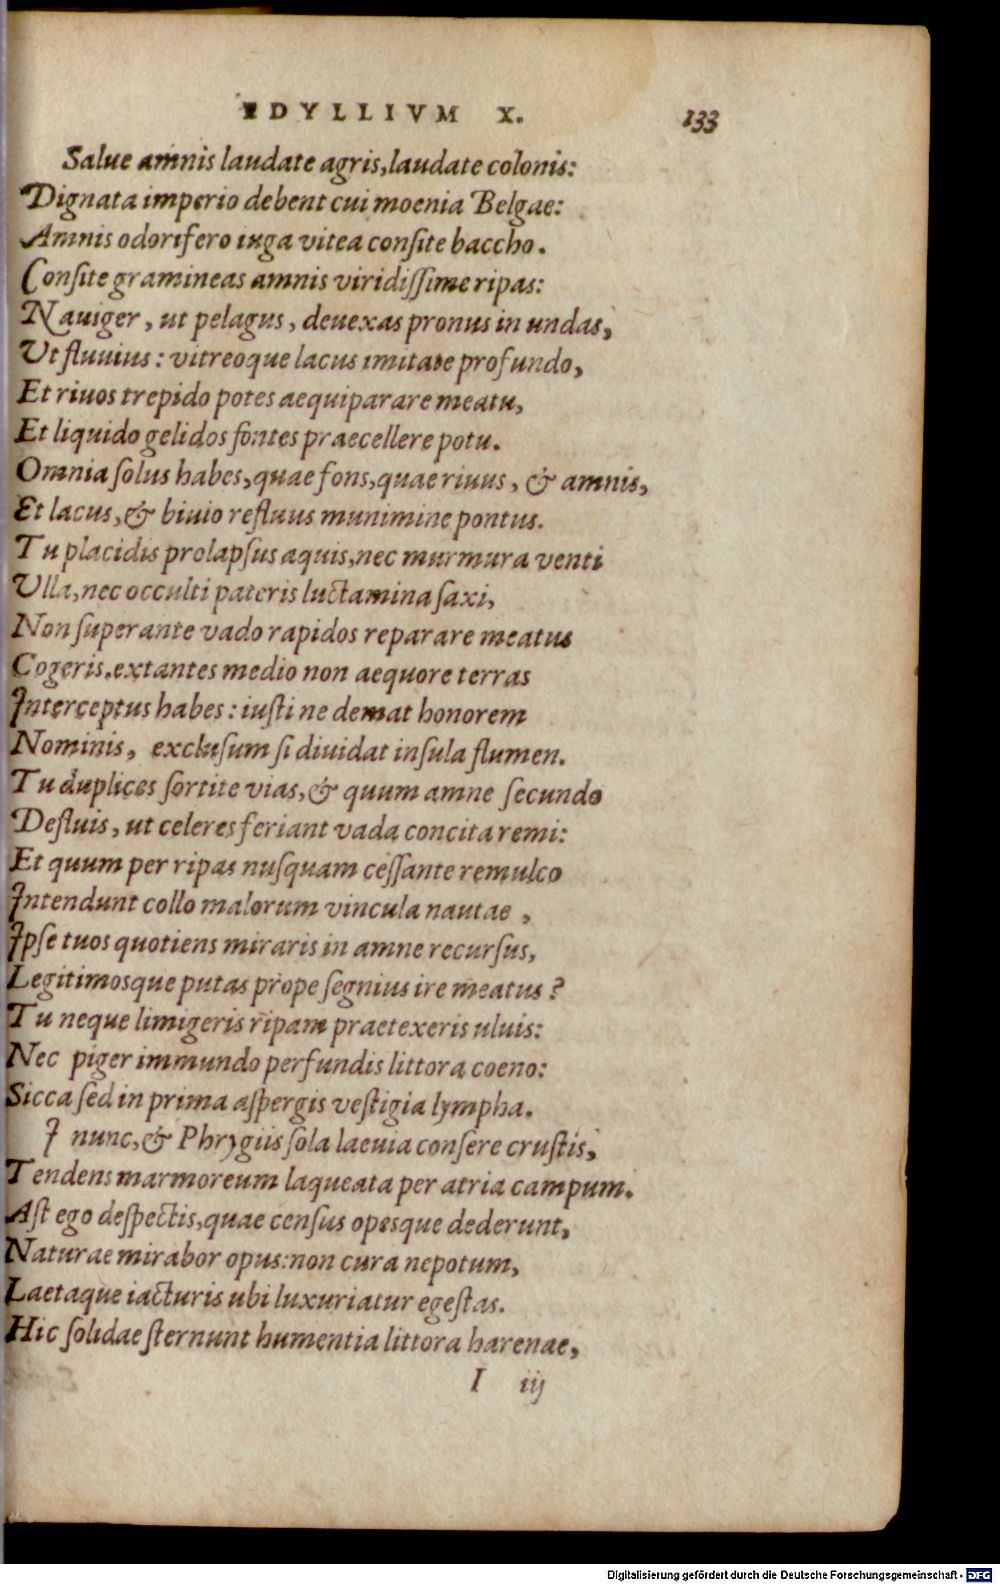 EDYLLIVM X. 133
Salue amnis laudate agris, laudate colonis:
Dignata imperio debent cui moenia Belgae:
Amnis odorifero iuga vitea consite baccho.
Consite gramineas amnis viridissime ripas:
Nauiger, ut pelagus, deuexas pronus in undas,
Ut fluuius: vitreoque lacus imitate profundo,
Et riuos trepido potes aequiparare meatu,
Et liquido gelidos fontes praecellere potu.
Omnia solus habes, quae fons, quae riuus, & amnis,
Et lacus, & biuio refluus munimine pontus.
Tu placidis prolapsus aquis, nec murmura venti
Ulla, nec occulti pateris luctamina saxi,
Non superante vado rapidos reparare meatus
Cogeris. extantes medio non aequore terras
Interceptus habes: iusti ne demat honorem
Nominis, exclusum si diuidat insula flumen.
Tu duplices sortite vias, & quum amne secundo
Defluis, ut celeres feriant vada concita remi:
Et quum per ripas nusquam cessante remulco
Intendunt collo malorum vincula nautae,
Ipse tuos quotiens miraris in amne recursus,
Legitimosque putas prope segnius ire meatus?
Tu neque limigeris ripam praetexeris uluis:
Nec piger immundo perfundis littora coeno:
Sicca sed in prima aspergis vestigia lympha.
I nunc, & Phrygiis sola laeuia consere crustis,
Tendens marmoreum laqueata per atria campum.
Ast ego despectis, quae census opesque dederunt,
Naturae mirabor opus: non cura nepotum,
Laetaque iacturis ubi luxuriatur egestas.
Hic solidae sternunt humentia littora harenae,
I iij
Digitalisierung gefördert durch die Deutsche Forschungsgemeinschaft - DFG